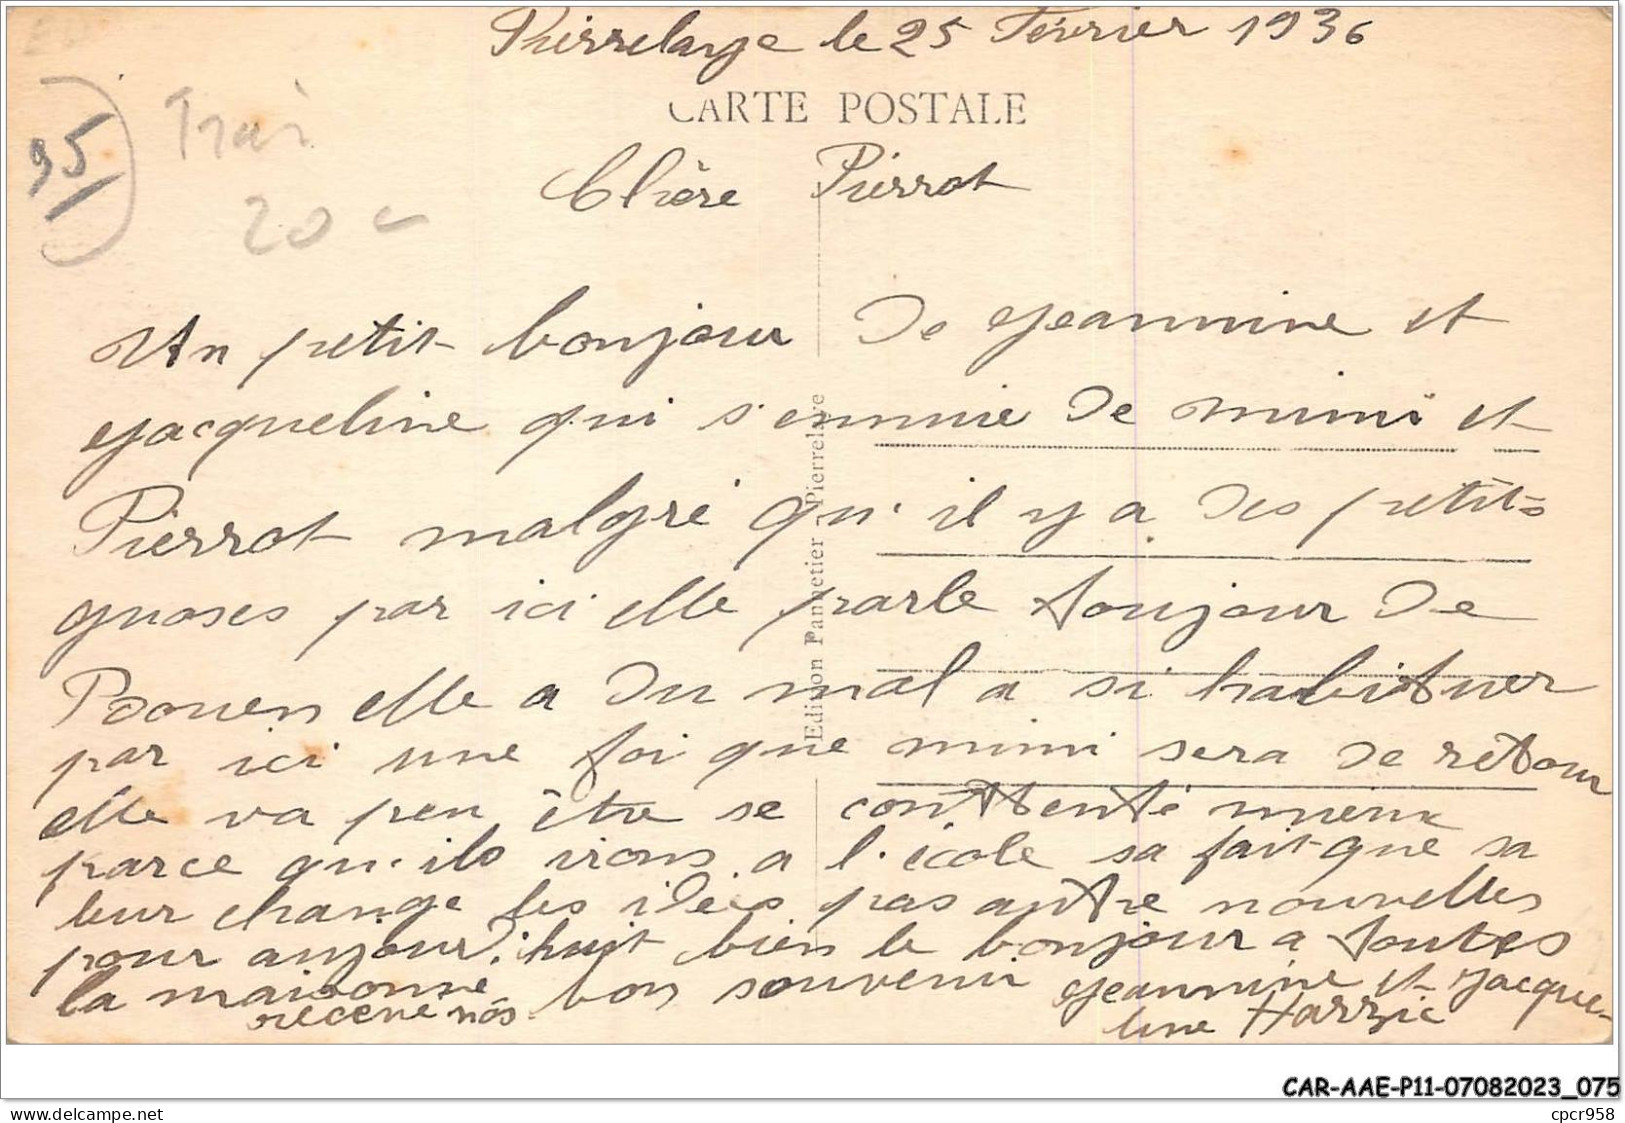 Pierrelaye le 25 Février 1936
CARTE POSTALE
95
Train
20 -
Chère Pierrot
Un petit bonjour de Jeannine et
Jacqueline qui s'ennuie de mimi et
Pierrot malgré qu'il y a des petit=
gnoses par ici elle parle toujour de
Roouen elle a du mal a si habituer
par ici une foi que mimi sera de retour
elle va peu être se conttenté mieux
parce qu'ils irons a l'école sa fait que sa
leur change les idées pas autre nouvelles
pour aujourd'huit bien le bonjour a toutes
la maisonne bon souvenir Jeannine et Jacque-
recene nos line Harzic
Edition Pannetier Pierrelaye
CAR-AAE-P11-07082023_075
www.delcampe.net
cpcr958